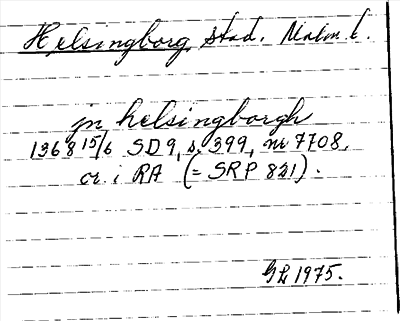 Helsingborg, stad. Malm. l.
jn helsingborgh
1368 15/6 SD 9, s. 399, nr 7708,
or. i RA (= SRP 821).
GL 1975.